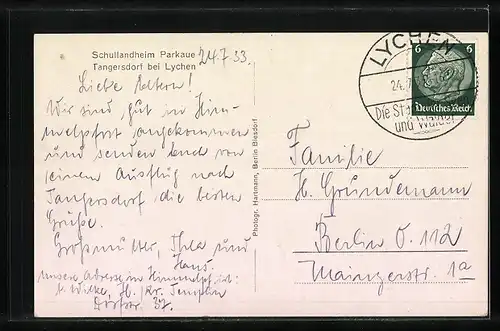 Schullandheim Parkaue
Tangersdorf bei Lychen
24.7.33.
Liebe Eltern!
Wir sind gut in Him-
melpfort angekommen
und senden Euch von
einem Ausflug nach
Tangersdorf die besten
Grüße.
Großmutter, Thea und
Hans.
Unsere Adresse in Himmelpf. ist:
b. Wilke, H. / Kr. Templin
Dorfstr. 37.
Photogr. Hartmann, Berlin Biesdorf
LYCHEN
24.7
Die St
und Wälder
6 6
Deutsches Reich
Familie
H. Grundemann
Berlin O. 112
Mainzerstr. 1a